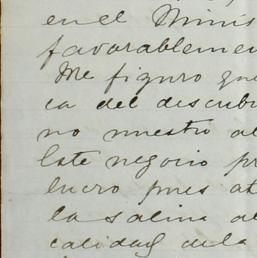 en el Minis
favorablemen
Me figuro que
ca del descubri
no nuestro al
Este negocio pr
lucro pues at
la salina al
calidad de la